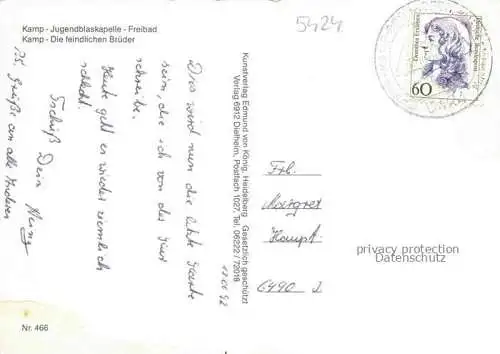 Kamp - Jugendblaskapelle - Freibad
Kamp - Die feindlichen Brüder
5424
11.01.92
Das wird nun die letzte Karte
sein, die ich von der Kur
schreibe.
Heute geht es wieder ziemlich
schlecht.
Tschüß Dein
PS. Grüße an alle Anderen
Nr. 466
Kunstverlag Edmund von König, Heidelberg Gesetzlich geschützt
Verlag 6912 Dielheim, Postfach 1027, Tel. 06222 / 72018
60
Deutsche Bundespost
Frl.
Margret
Hampf
6490
privacy protection
Datenschutz